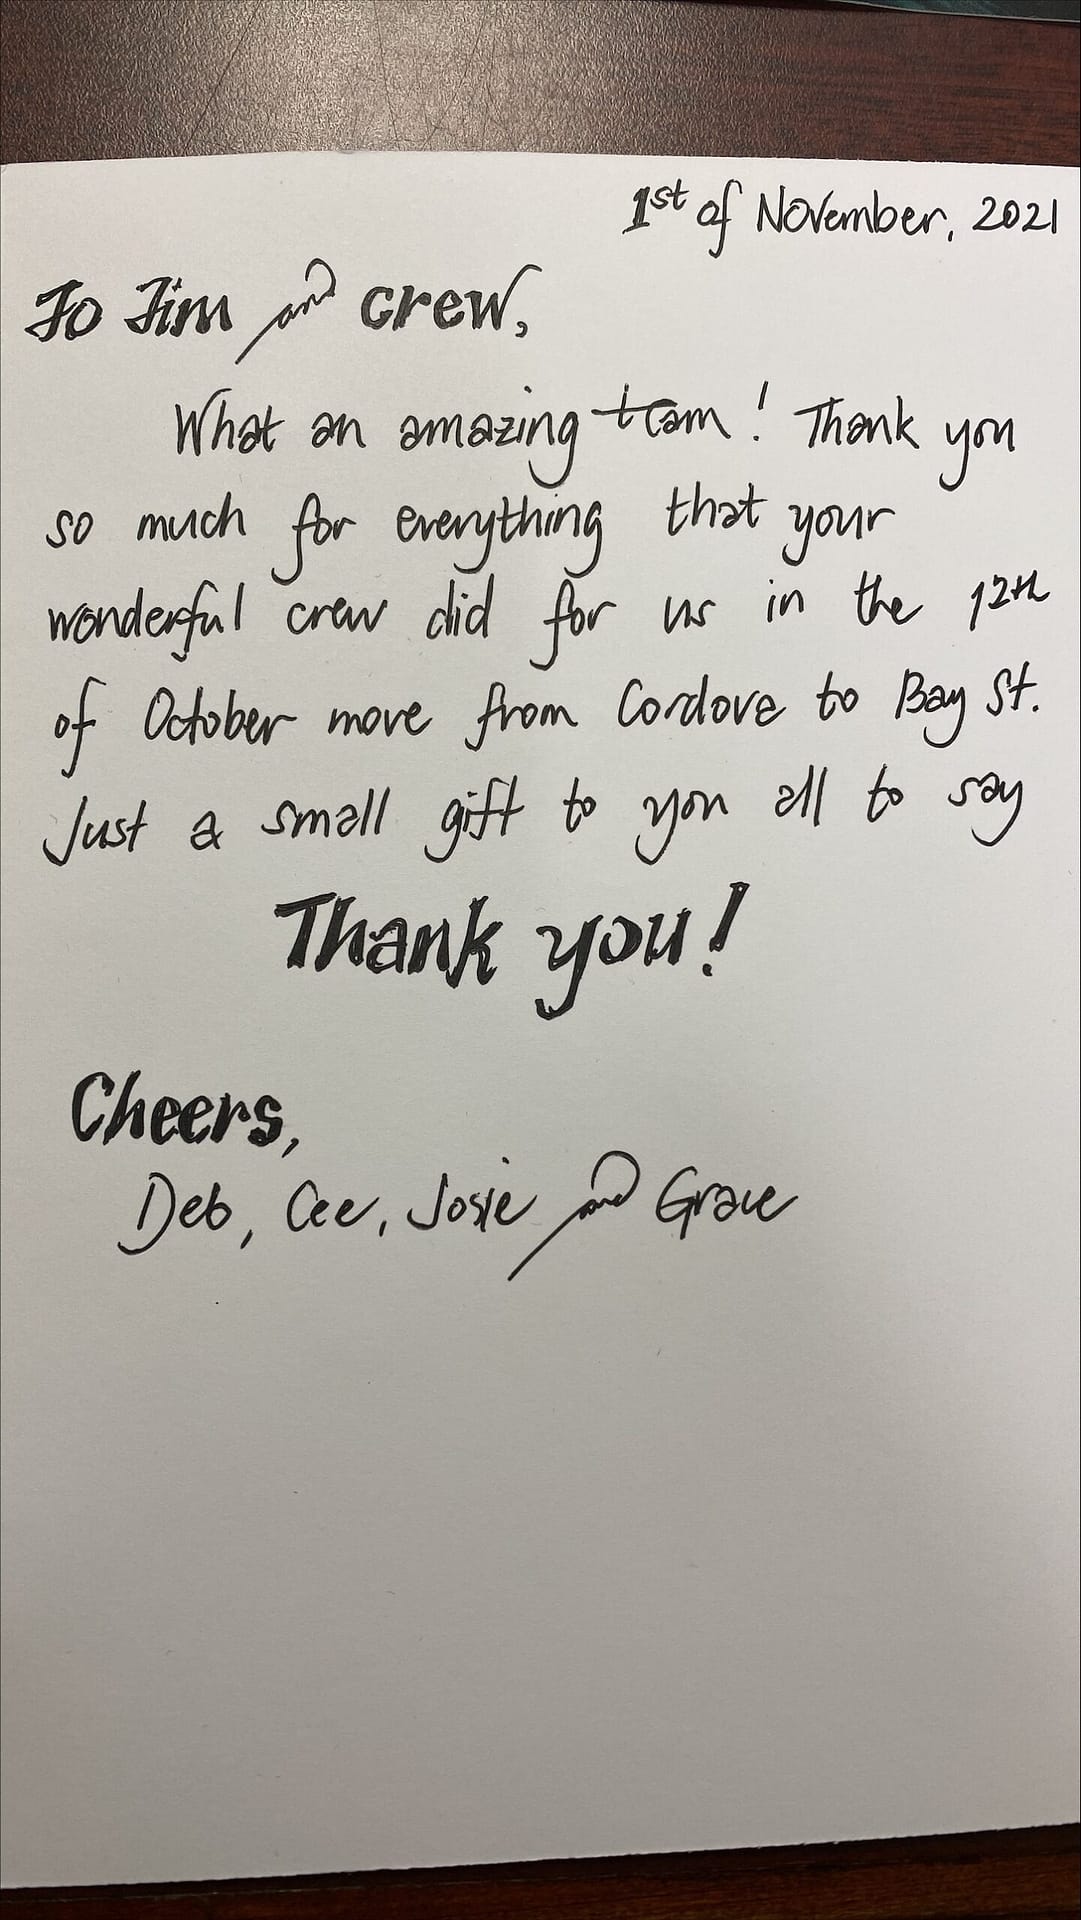 1st of November, 2021
To Jim and crew,
What an amazing team! Thank you
so much for everything that your
wonderful crew did for us in the 12th
of October move from Cordova to Bay St.
Just a small gift to you all to say
Thank you!
Cheers,
Deb, Cee, Josie and Grace